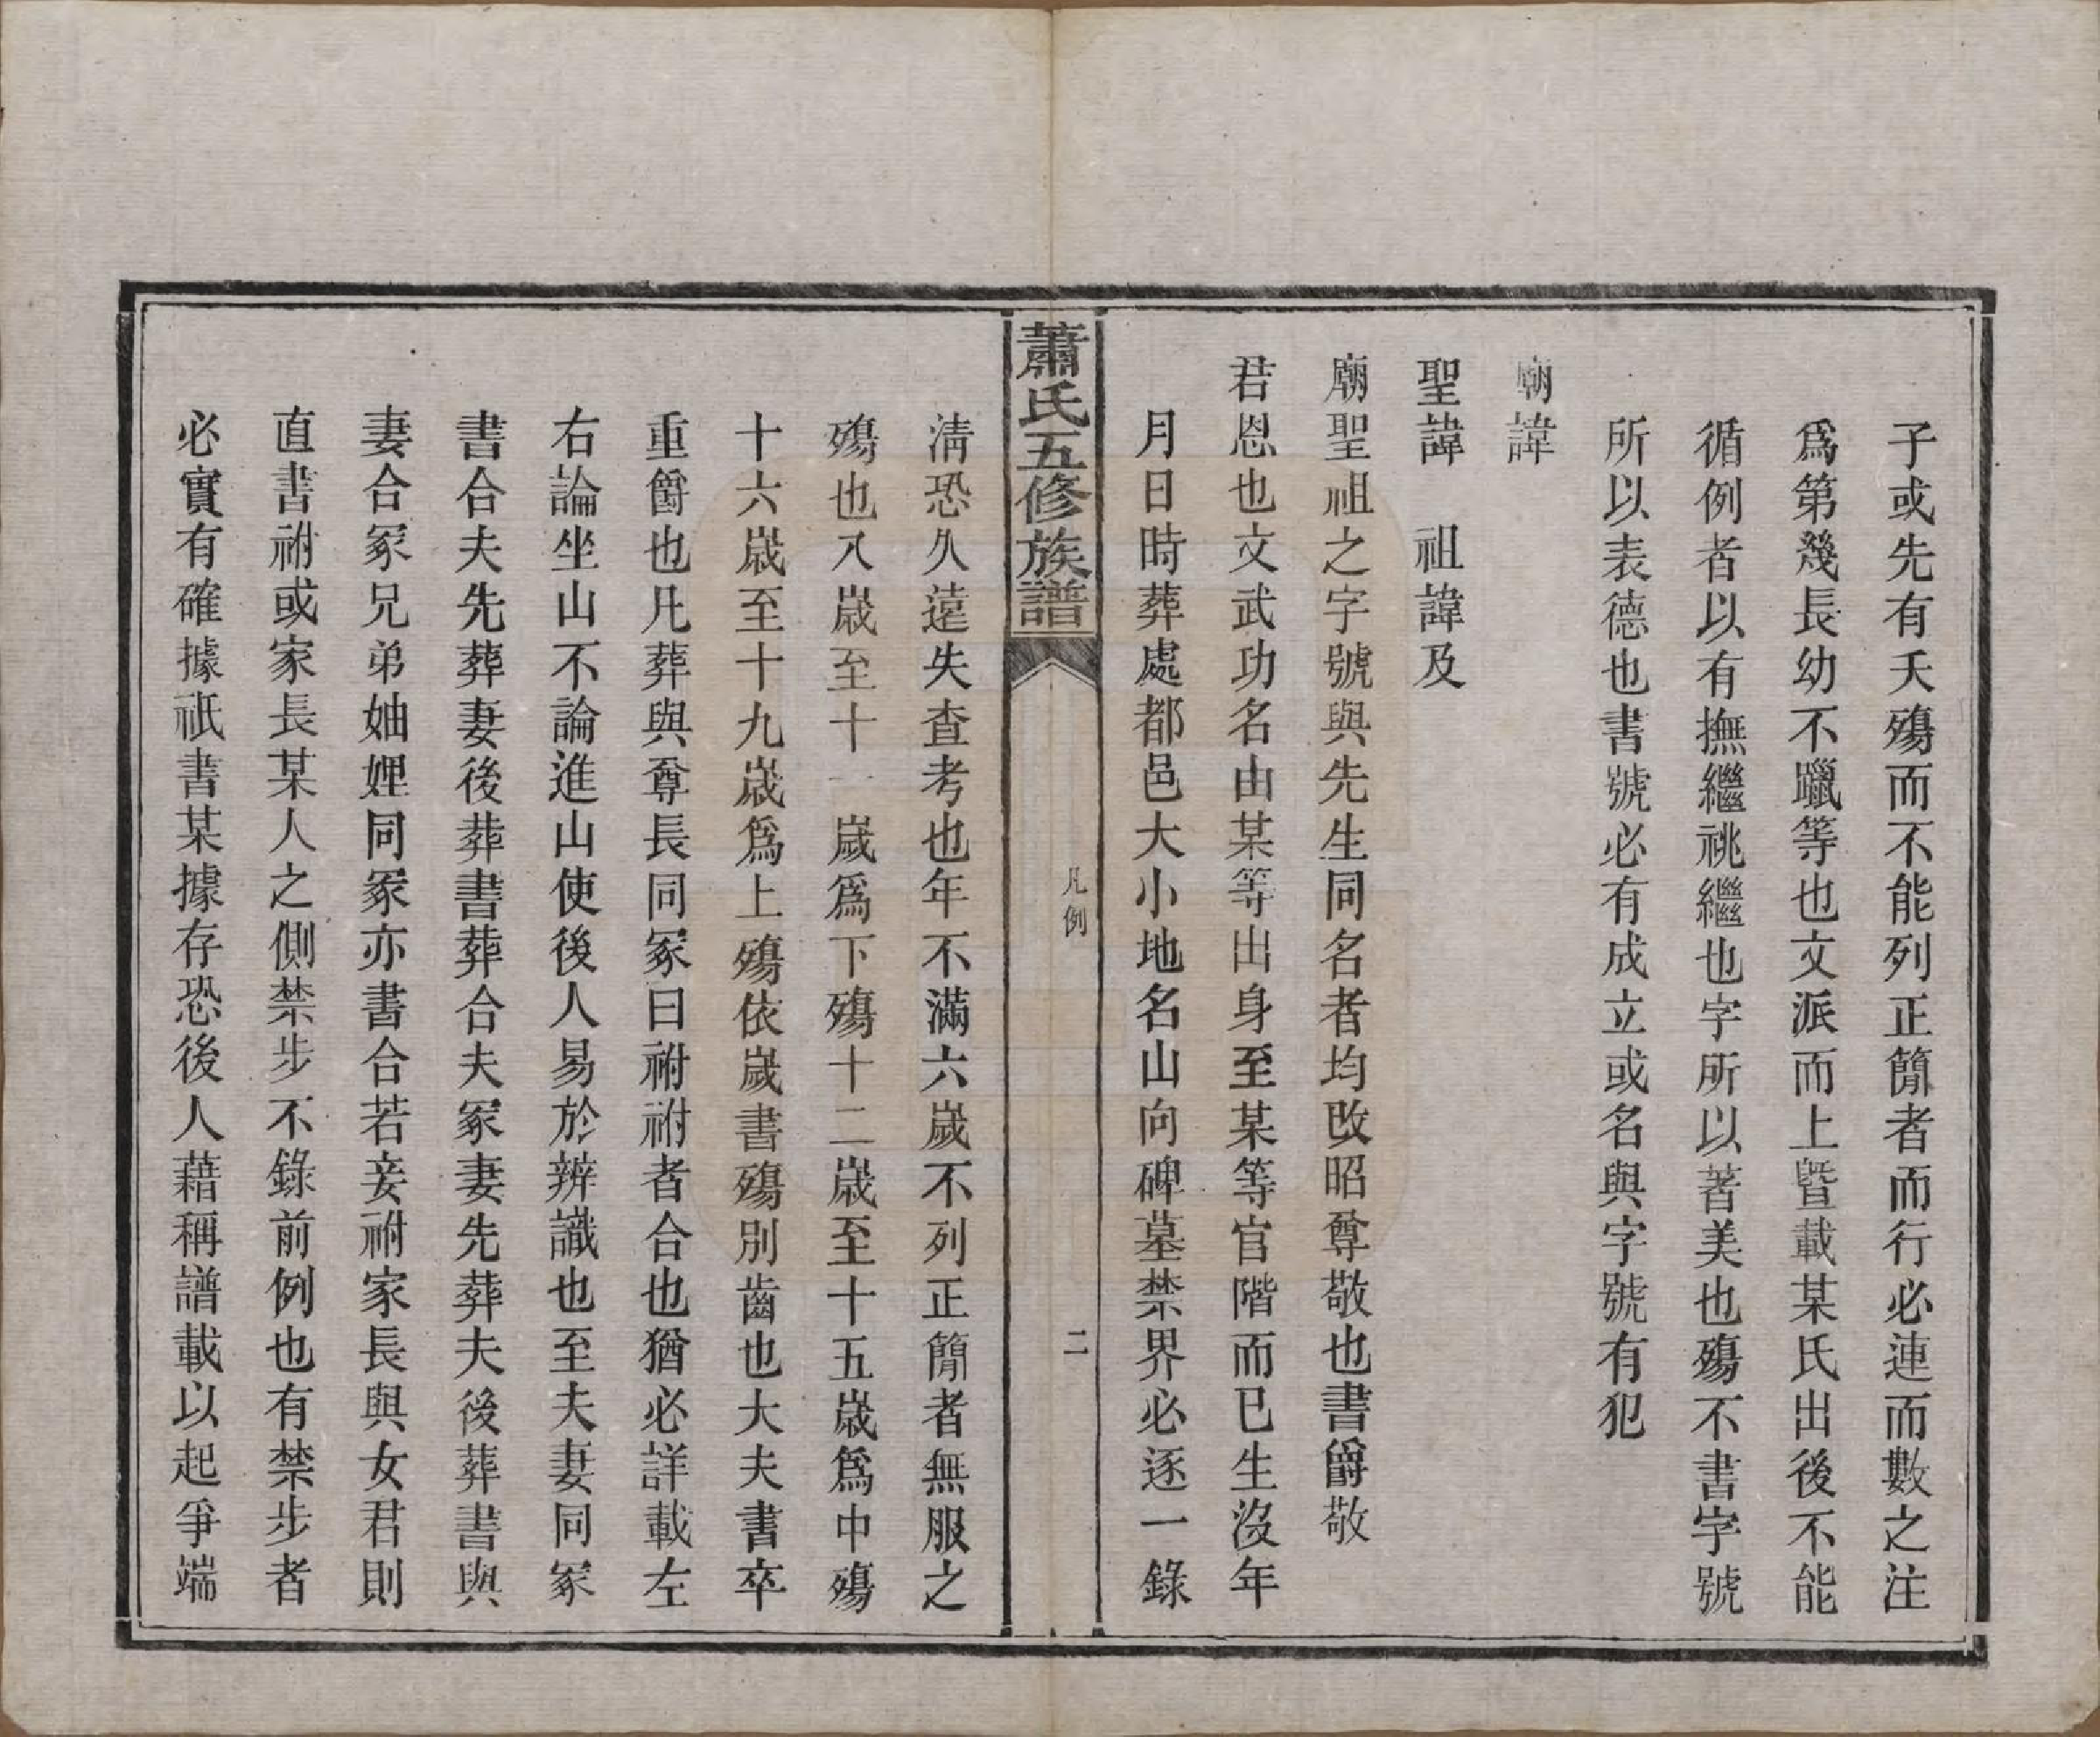 子或先有夭殤而不能列正簡者而行必連而數之注
爲第幾長幼不躐等也文派而上曁載某氏出後不能
循例者以有撫繼祧繼也字所以著美也殤不書字號
所以表德也書號必有成立或名與字號有犯
廟諱
聖諱　祖諱及
廟聖祖之字號與先生同名者均改昭尊敬也書爵敬
君恩也文武功名由某等出身至某等官階而已生沒年
月日時葬處都邑大小地名山向碑墓禁界必逐一錄
蕭氏五修族譜
凡例
二
淸恐久遠失查考也年不滿六歲不列正簡者無服之
殤也八歲至十一歲爲下殤十二歲至十五歲爲中殤
十六歲至十九歲爲上殤依歲書殤別齒也大夫書卒
重爵也凡葬與尊長同冢曰祔祔者合也猶必詳載左
右論坐山不論進山使後人易於辨識也至夫妻同冢
書合夫先葬妻後葬書葬合夫冢妻先葬夫後葬書與
妻合冢兄弟妯娌同冢亦書合若妾祔家長與女君則
直書祔或家長某人之側禁步不錄前例也有禁步者
必實有確據祇書某據存恐後人藉稱譜載以起爭端